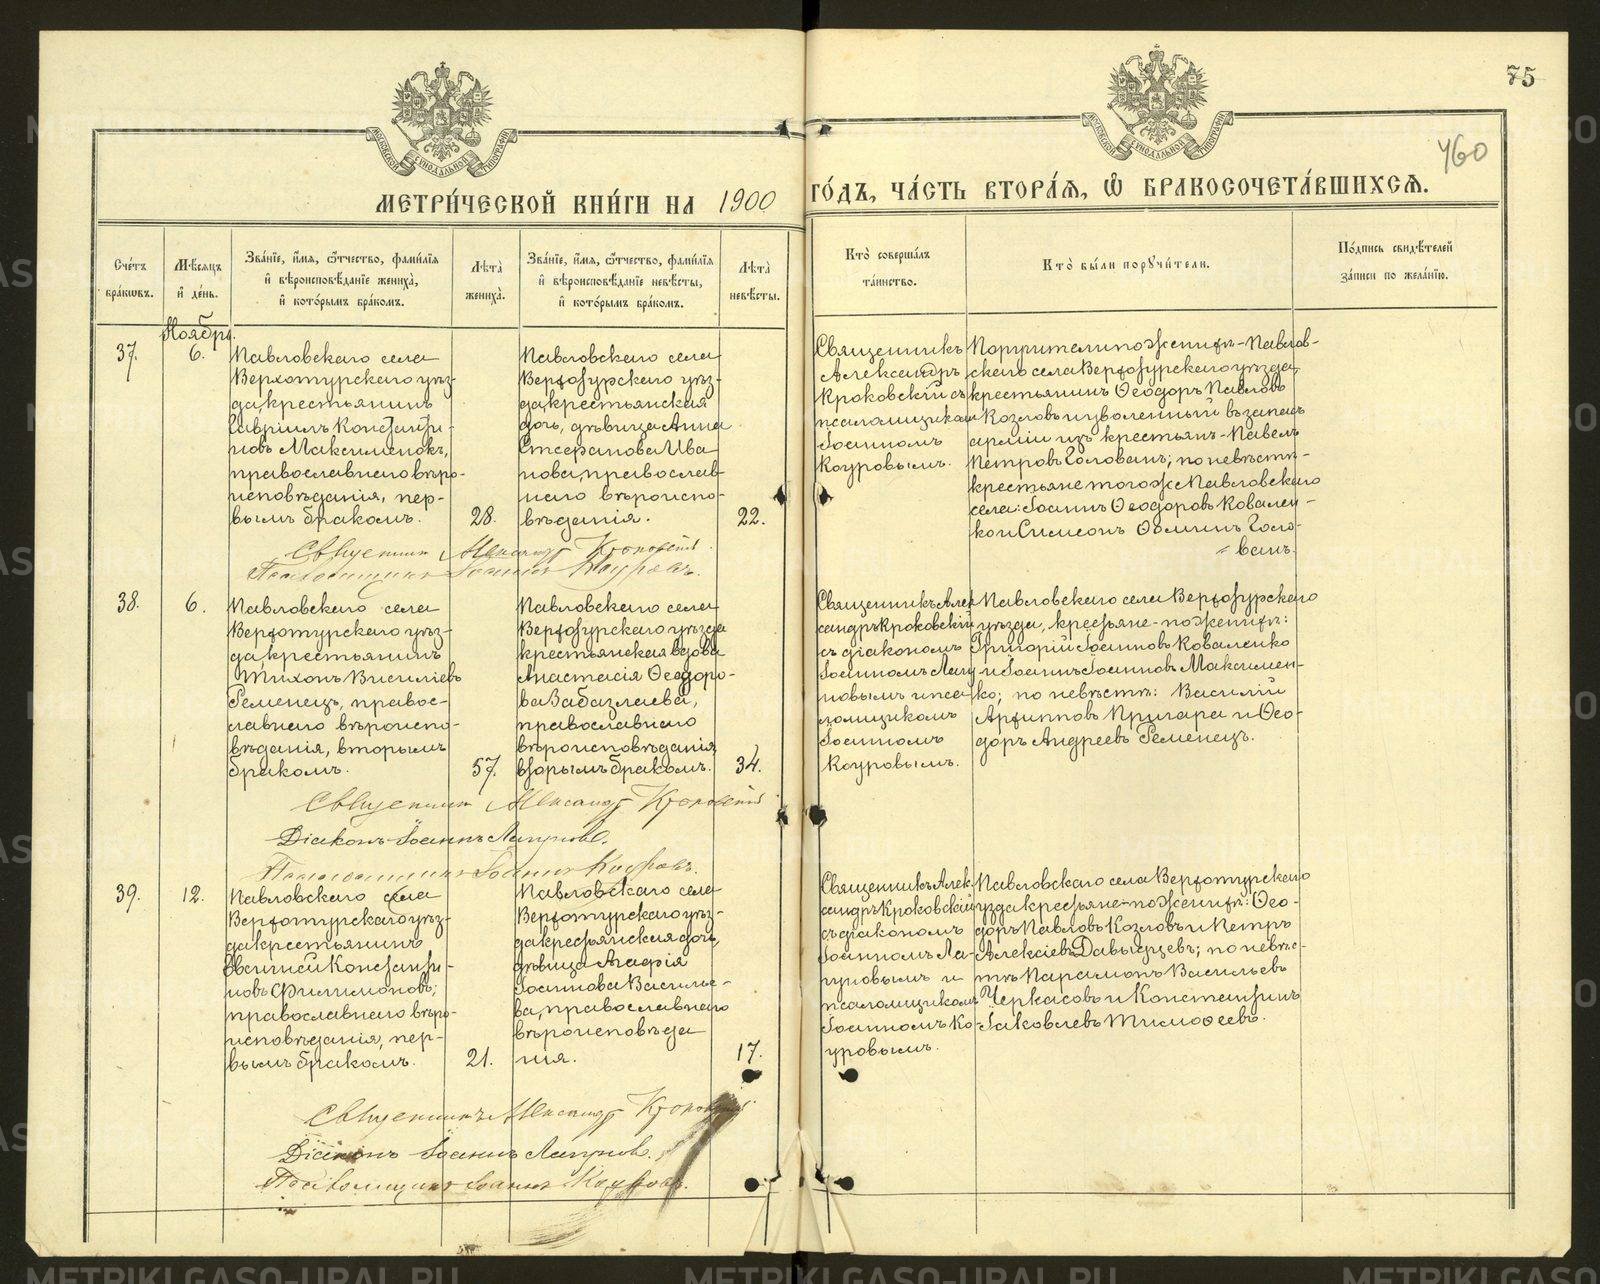 75
460
МОСКОВСКОЙ СѴНОДАЛЬНОЙ ТИПОГРАФІИ
МОСКОВСКОЙ СѴНОДАЛЬНОЙ ТИПОГРАФІИ
МЕТРИ́ЧЕСКОЙ КНИ́ГИ НА 1900 ГО́ДЪ, ЧА́СТЬ ВТОРА́Я, Ѡ҆ БРАКОСОЧЕТА́ВШИХСЯ.
Сче́тъ
бра́кѡвъ.
Мѣ́сяцъ
и҆ де́нь.
Зва́нїе, и҆́мя, ѻ҆́тчество, фами́лїя
и҆ вѣроисповѣ́данїе жениха̀,
и҆ кото́рымъ бра́комъ.
Лѣта̀
жениха̀.
Зва́нїе, и҆́мя, ѻ҆́тчество, фами́лїя
и҆ вѣроисповѣ́данїе невѣ́сты,
и҆ кото́рымъ бра́комъ.
Лѣта̀
невѣ́сты.
Кто̀ соверша́лъ
та́инство.
Кто̀ бы́ли порꙋчи́тели.
По́дпись свидѣ́телей
за́писи по жела́нїю.
Ноябрь.
37.
6.
Павловскаго села
Верхотурскаго уѣз-
да, крестьянинъ
Гавріилъ Константи-
новъ Максименокъ,
православнаго вѣро-
исповѣданія, пер-
вымъ бракомъ.
28.
Павловскаго села
Верхотурскаго уѣз-
да, крестьянская
дочь, дѣвица Анна
Стефанова Ива
нова, православ-
наго вѣроиспо-
вѣданія.
22.
Священникъ
Александръ
Кроковскій съ
псаломщикомъ
Іоанномъ
Коуровымъ.
Поручители по женихѣ - Павлов-
скаго села Верхотурскаго уѣзда,
крестьянинъ Ѳеодоръ Павловъ
Козловъ и уволенный въ запасъ
арміи изъ крестьян - Павелъ
Петровъ Голованъ; по невѣстѣ -
крестьяне того же Павловскаго
села: Іоаннъ Ѳеодоровъ Ковален-
ко и Симеонъ Ѳоминъ Голо-
ванъ.
Священникъ Александръ Кроковскій.
Псаломщикъ Іоаннъ Коуровъ.
38.
6.
Павловскаго села
Верхотурскаго уѣз-
да, крестьянинъ
Тихонъ Василіевъ
Ременецъ, правос-
лавнаго вѣроиспо-
вѣданія, вторымъ
бракомъ.
57.
Павловскаго села
Верхотурскаго уѣзда
крестьянская вдова
Анастасія Ѳеодоро-
ва Забазлаева,
православнаго
вѣроисповѣданія
вторымъ бракомъ.
34.
Священникъ Алек
сандръ Кроковскій
съ діакономъ
Іоанномъ Лагу
новымъ и пса-
ломщикомъ
Іоанномъ
Коуровымъ.
Павловскаго села Верхотурскаго
уѣзда, крестьяне - по женихѣ:
Григорій Іоанновъ Коваленко
и Іоаннъ Іоанновъ Максимен-
ко; по невѣстѣ: Василій
Архиповъ Пригара и Ѳео-
доръ Андреевъ Ременецъ.
Священникъ Александръ Кроковскій
Діаконъ Іоаннъ Лагуновъ.
Псаломщикъ Іоаннъ Коуровъ.
39.
12.
Павловскаго села
Верхотурскаго уѣз-
да крестьянинъ
Евгеній Константи-
новъ Филимоновъ,
православнаго вѣро-
исповѣданія, пер-
вымъ бракомъ.
21.
Павловскаго села
Верхотурскаго уѣз-
да крестьянская дочь,
дѣвица Агафія
Іоаннова Василье-
ва, православнаго
вѣроисповѣда
нія.
17.
Священникъ Алек-
сандръ Кроковскій
съ діакономъ
Іоанномъ Ла-
гуновымъ и
псаломщикомъ
Іоанномъ Ко-
уровымъ.
Павловскаго села Верхотурскаго
уѣзда крестьяне - по женихѣ: Ѳео-
доръ Павловъ Козловъ и Петръ
Алексіевъ Давыдцевъ; по невѣс-
тѣ Парамонъ Васильевъ
Черкасовъ и Константинъ
Іаковлевъ Тимоѳеевъ.
Священникъ Александръ Кроковскій
Діаконъ Іоаннъ Лагуновъ.
Псаломщикъ Іоаннъ Коуровъ.
METRIKI.GASO-URAL.RU